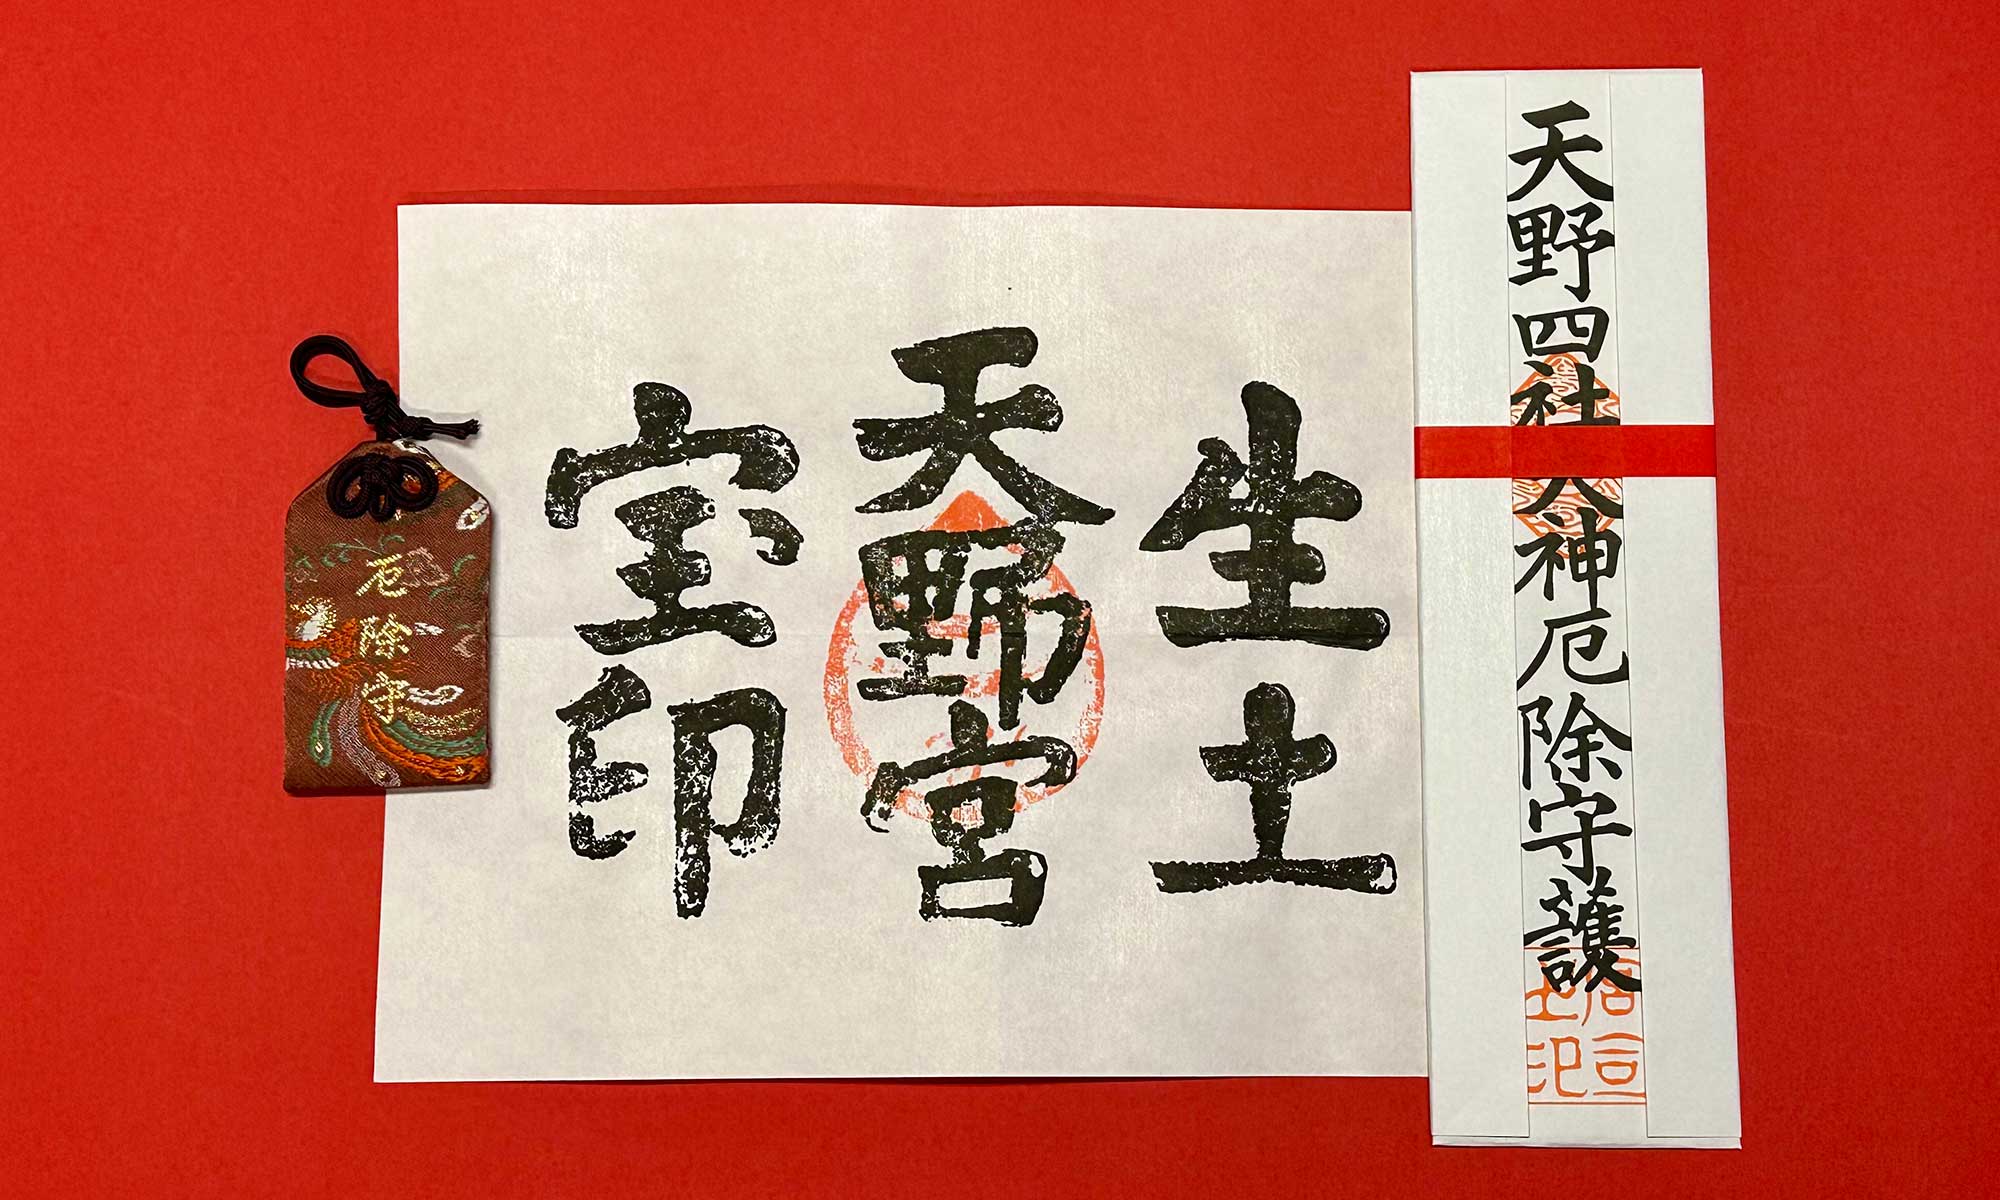 天野四社大神厄除守護
宮司之印
生土
天野宮
宝印
厄除守